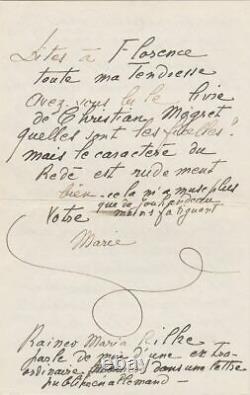 Dites à Florence
toute ma tendresse
avez-vous lu le livre
de Christian Mégret
quelles sont les
mais le caractère du
est rudement
bien - cela m'amuse plus
que de jouer
Votre moins fatiguant
Marie
Rainer Maria Rilke
parle de moi d'une
ordinaire dans une lettre
publié en allemand -